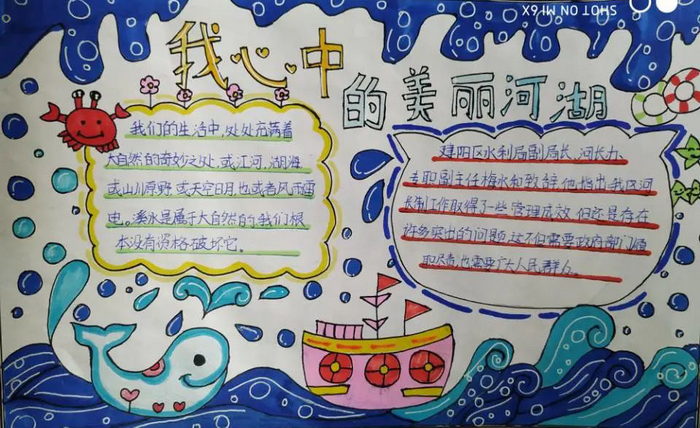 我心中
的美丽河湖
我们的生活中,处处充满着
大自然的奇妙之处,或江河,湖海,
或山川原野,或天空日月,也或者风雨雷
电。溪水是属于大自然的,我们根
本没有资格破坏它。
建阳区水利局副局长、河长办
专职副主任梅永和致辞,他指出我区河
长制工作取得了一些管理成效,但还是存在
许多突出的问题,这不但需要政府部门履
职尽责,也需要广大人民群众。
SHOT ON MI 6X